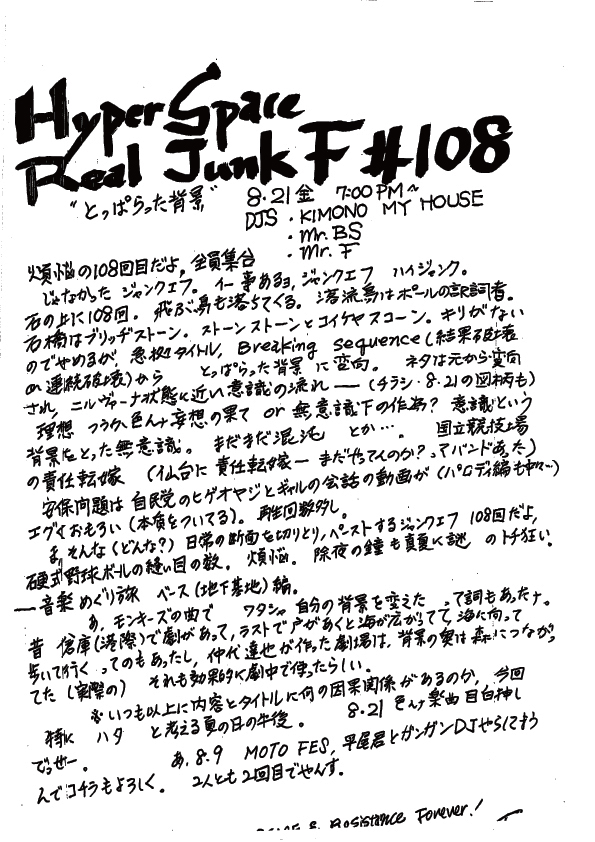 Hyper Space
Real Junk F #108
"とっぱらった背景" 8.21金 7:00PM~
DJS ・KIMONO MY HOUSE
・Mr.BS
・Mr.F
煩悩の108回目だよ,全員集合
じゃなかった ジャンクエフ。イー事あるヨ,ジャンクエフ ハイジャンク。
石の上に108回。飛ぶ鳥も落ちてくる。渡流鳥はポールの訳詞者。
石橋はブリッヂストーン。ストーンストーンとコイケヤスコーン。キリがない
のでやめるが 急拠タイトル, Breaking sequence(結果破壊
の連続破壊)から とっぱらった背景 に変向。 ネタは元から変向
され, ニルヴァーナ状態に近い意識の流れ――(チラシ・8.21の図柄も)
理想 つうか,色んな妄想の果て or 無意識下の作為? 意識という
背景をとった無意識。 まだまだ混沌 とか…。 国立競技場
の責任転嫁 (仙台に 責任転嫁ー まだやってんのか?ってバンドあった)
安保問題は 自民党のヒゲオヤジとギャルの会話の動画が(パロディ編も中々…)
エグくおもろい(本質をついてる)。 再生回数多し。
ま,そんな(どんな?)日常の断面を切りとり,ペーストするジャンクエフ 108回だよ,
硬式野球ボールの縫い目の数。 煩悩。 除夜の鐘も真夏に謎 のトチ狂い。
――音楽めぐり旅 ベース(地下基地)編。
あ,モンキーズの曲で ワタシャ 自分の背景を変えた って詞もあったナ。
昔 倉庫(港際)で劇があって,ラストで戸があくと海が広がってて,海に向って
歩いて行く ってのもあったし,仲代達也が作った劇場は,背景の奥は森につながっ
てた(実際の) それも効果的に劇中で使ったらしい。
※いつも以上に内容とタイトルに何の因果関係があるのか, 今回
特に ハタ と考える夏の日の午後。 8.21 色んな楽曲目白押し
でっせー。 あ,8.9 MOTO FES, 平尾君とガンガンDJやらしてもろ
んでコチラもよろしく。 2人とも2回目でやんす。
& Resistance Forever!